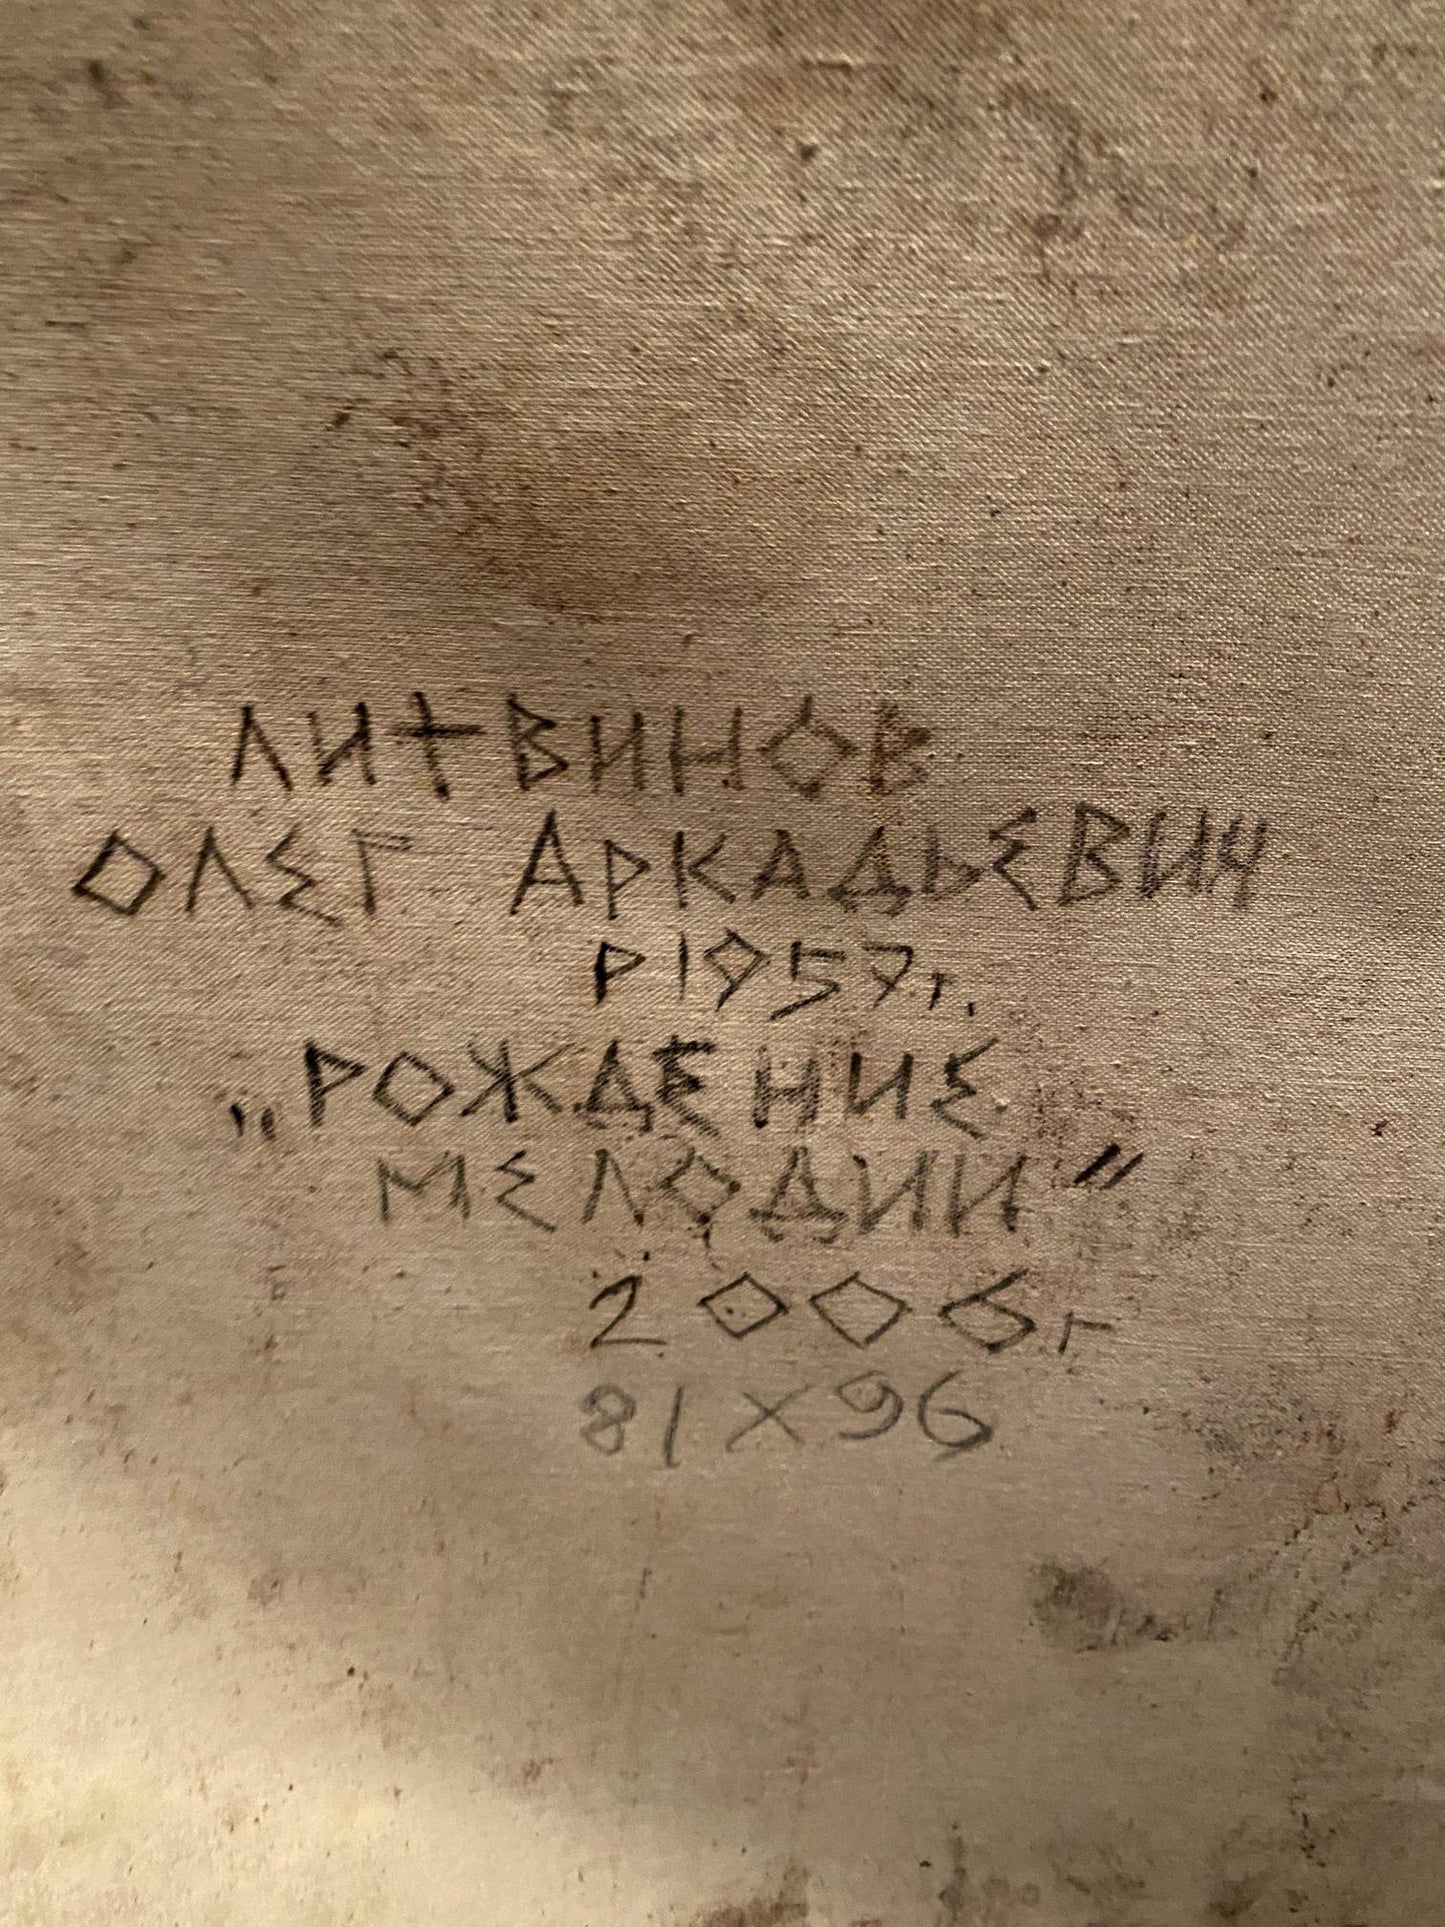 ЛИТВИНОВ
ОЛЕГ АРКАДЬЕВИЧ
Р 1957 г.
„РОЖДЕНИЕ
МЕЛОДИИ"
2006 г
81 X 96